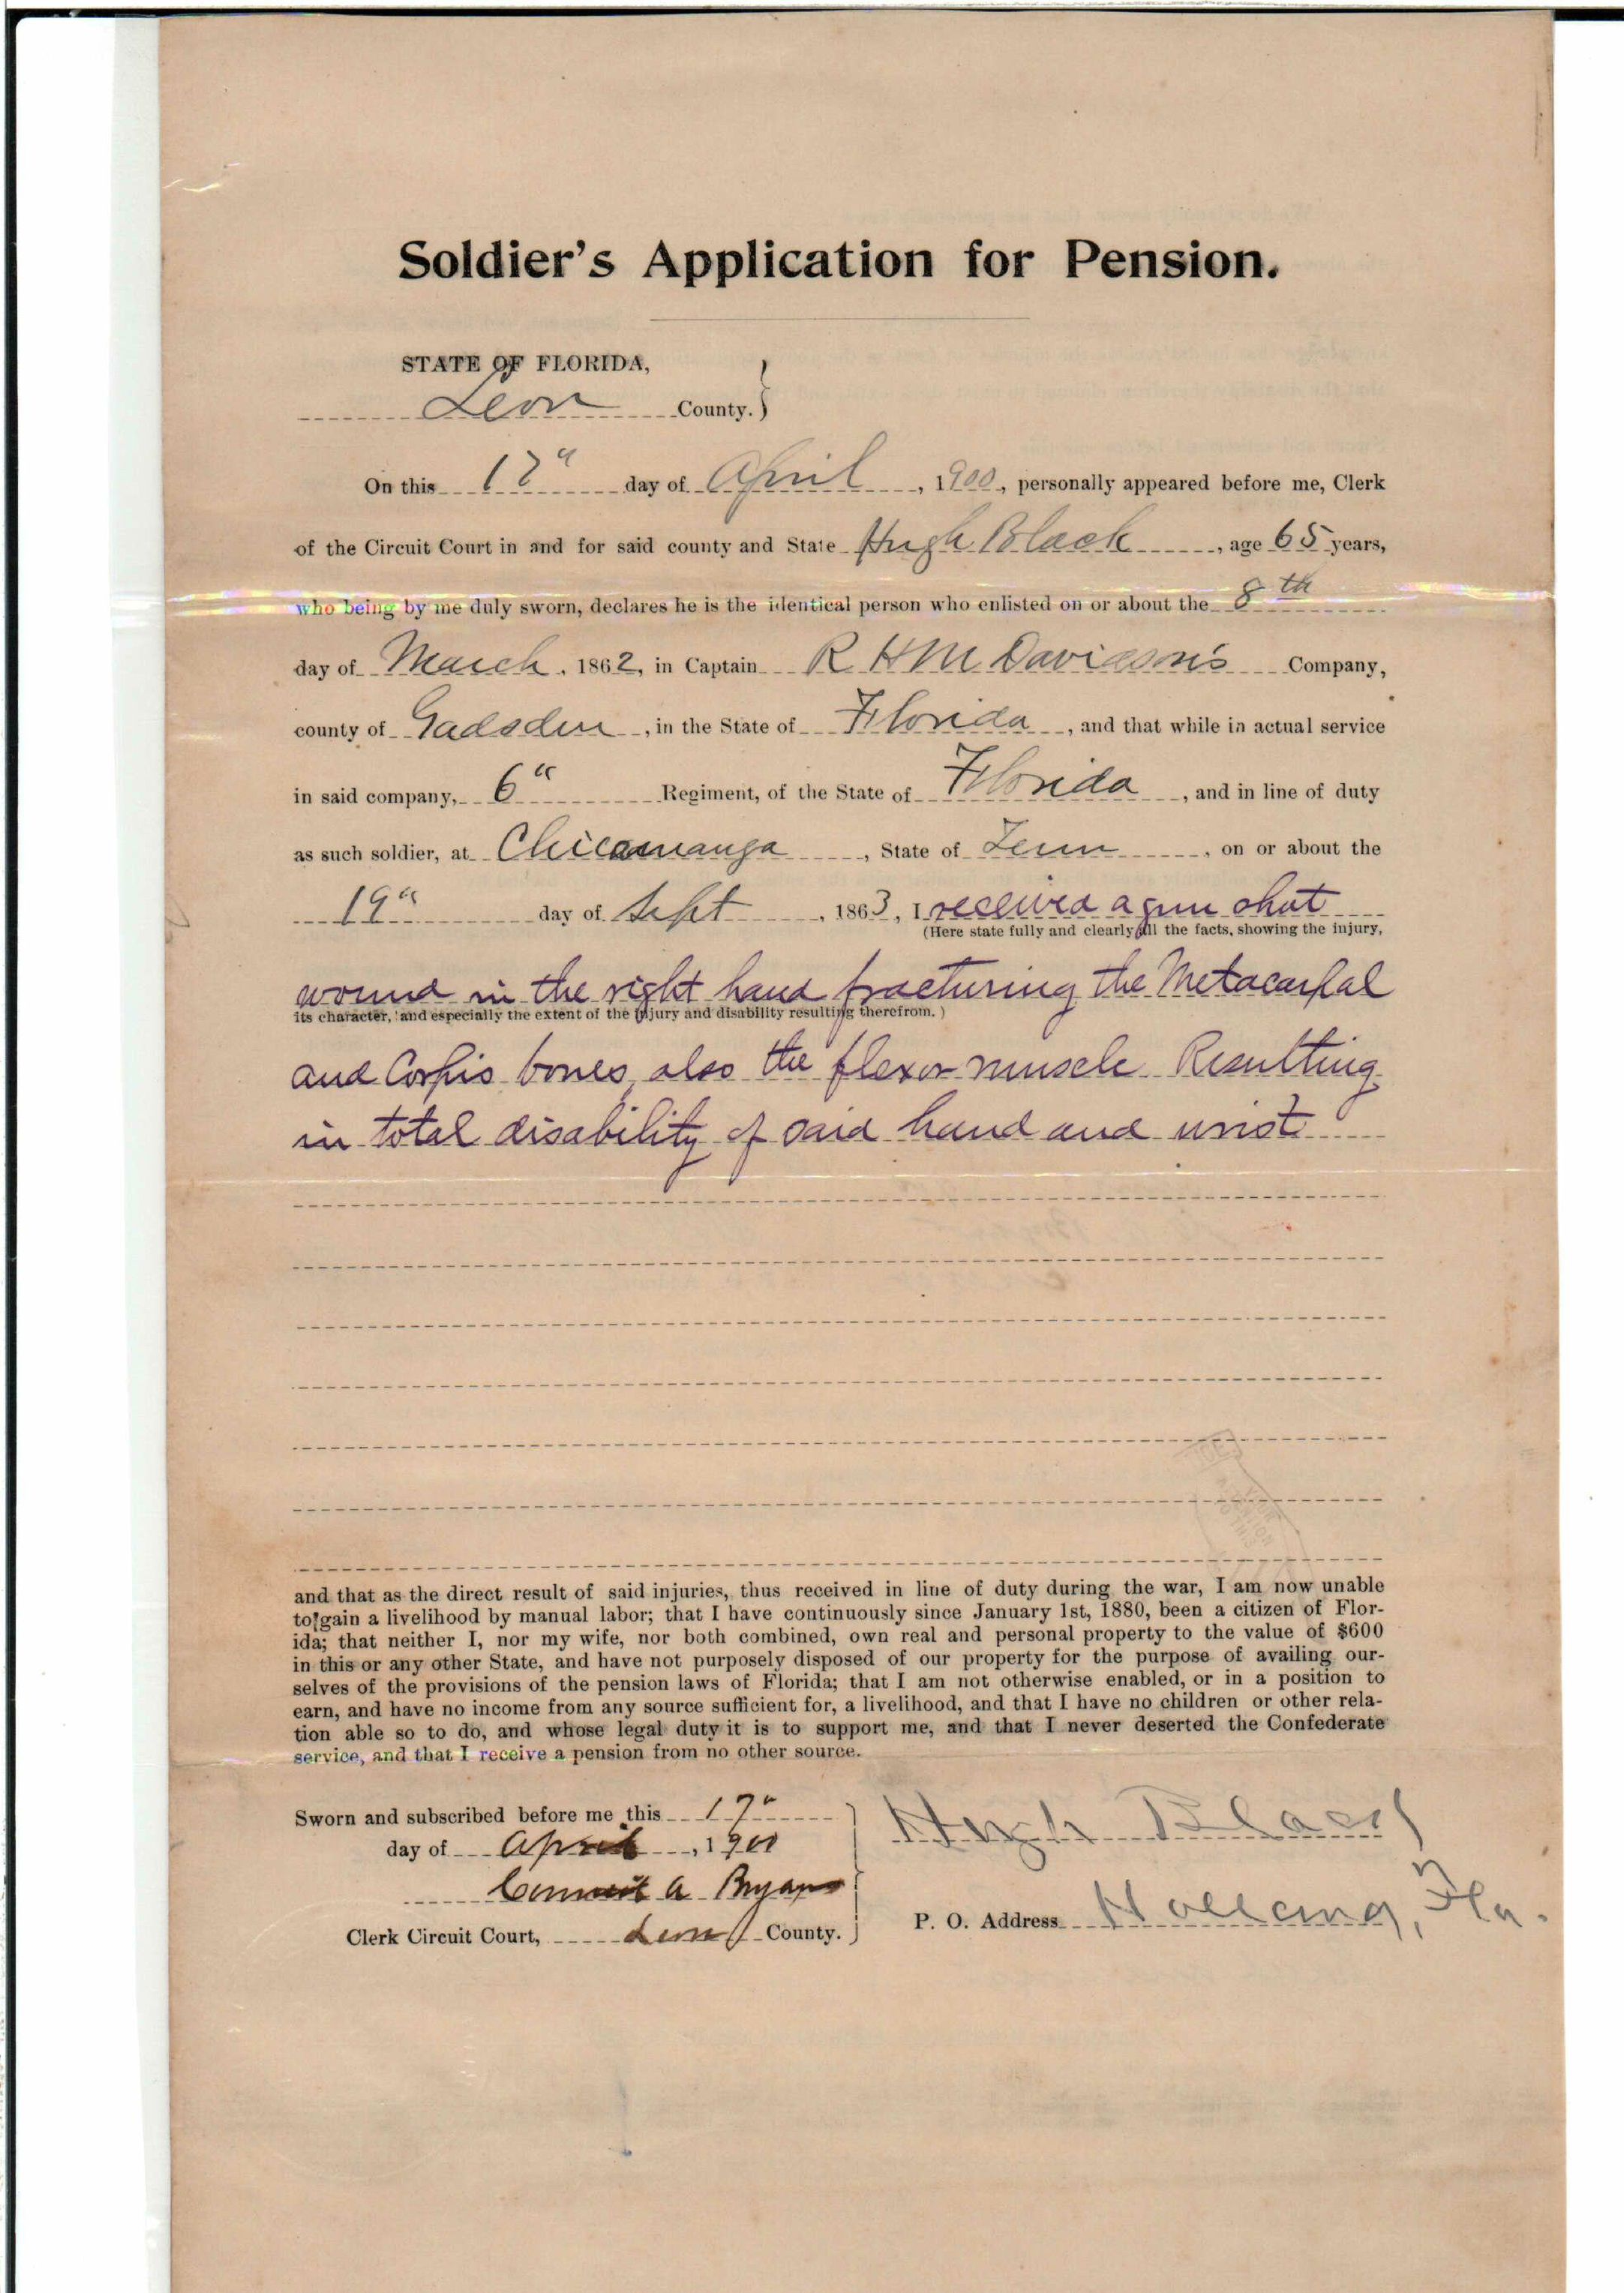 Soldier's Application for Pension.
STATE OF FLORIDA,
Leon County. }
On this 17" day of April, 1900, personally appeared before me, Clerk
of the Circuit Court in and for said county and State Hugh Black, age 65 years,
who being by me duly sworn, declares he is the identical person who enlisted on or about the 8th
day of March, 1862, in Captain R H M Davidson's Company,
county of Gadsden, in the State of Florida, and that while in actual service
in said company, 6" Regiment, of the State of Florida, and in line of duty
as such soldier, at Chicamauga, State of Tenn, on or about the
19" day of Sept, 1863, I received a gun shot
(Here state fully and clearly all the facts, showing the injury,
wound in the right hand fracturing the Metacarpal
its character, and especially the extent of the injury and disability resulting therefrom.)
and Corpis bones, also the flexor muscle Resulting
in total disability of said hand and wrist
and that as the direct result of said injuries, thus received in line of duty during the war, I am now unable
to gain a livelihood by manual labor; that I have continuously since January 1st, 1880, been a citizen of Flor-
ida; that neither I, nor my wife, nor both combined, own real and personal property to the value of $600
in this or any other State, and have not purposely disposed of our property for the purpose of availing our-
selves of the provisions of the pension laws of Florida; that I am not otherwise enabled, or in a position to
earn, and have no income from any source sufficient for, a livelihood, and that I have no children or other rela-
tion able so to do, and whose legal duty it is to support me, and that I never deserted the Confederate
service, and that I receive a pension from no other source.
Sworn and subscribed before me this 17"
day of April, 1900
Council A Bryan
Clerk Circuit Court, Leon County. }
Hugh Black
P. O. Address Holland, Fla.